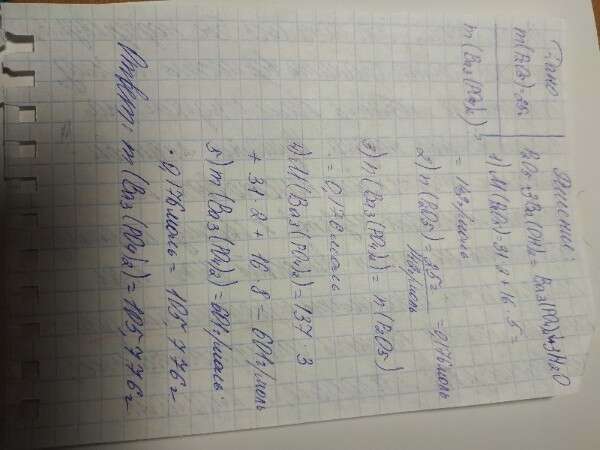 Дано
m(P2O5)=25г
m(Ba3(PO4)2)-?
Решение:
P2O5+3Ba(OH)2=Ba3(PO4)2+3H2O
1) M(P2O5)=31·2+16·5=
=142г/моль
2) n(P2O5)=25г/142г/моль=0,176моль
3) n(Ba3(PO4)2)=n(P2O5)
=0,176моль
4) M(Ba3(PO4)2)=137·3
+31·2+16·8=601г/моль
5) m(Ba3(PO4)2)=601г/моль·
·0,176моль=105,776г
Ответ: m(Ba3(PO4)2)=105,776г